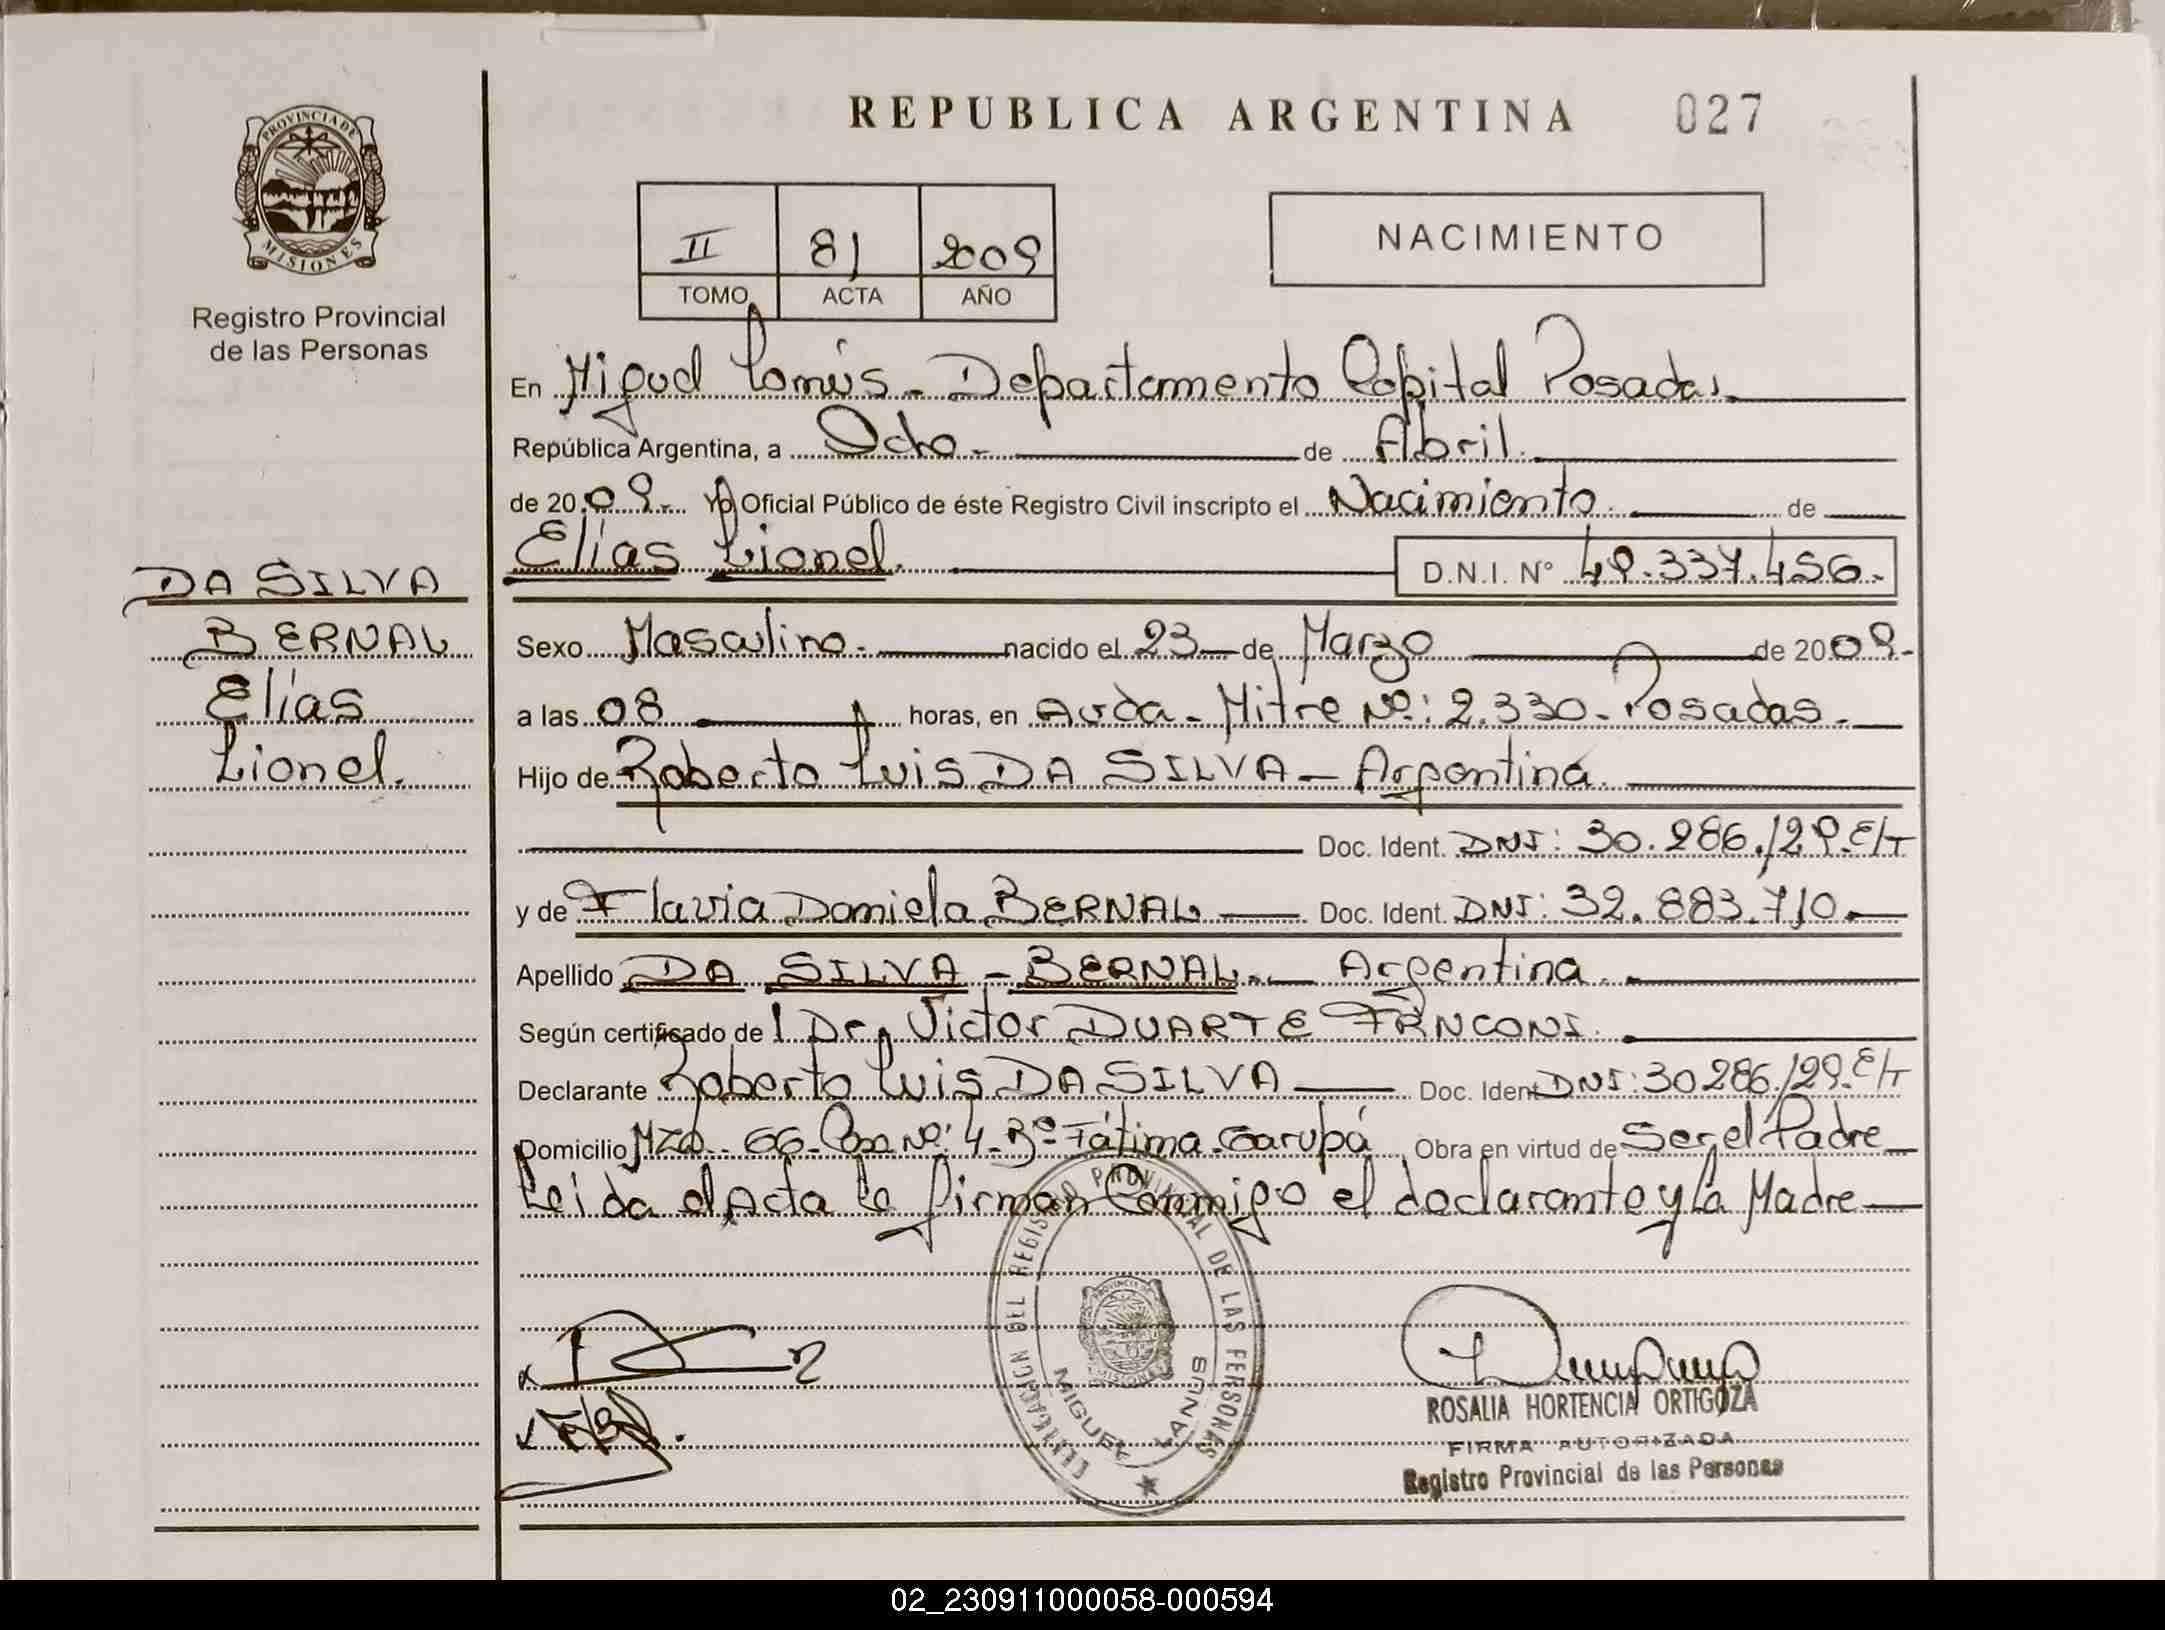 REPUBLICA ARGENTINA 027
PROVINCIA DE
MISIONES
Registro Provincial
de las Personas
II 81 2009
TOMO ACTA AÑO
NACIMIENTO
En Miguel Lanús - Departamento Capital Posadas
República Argentina, a Ocho - de Abril.
de 2009.- Yo Oficial Público de éste Registro Civil inscripto el Nacimiento. de
Elías Lionel. D.N.I. N° 49.337.456.-
DA SILVA
BERNAL
Elías
Lionel.
Sexo Masculino.- nacido el 23 de Marzo de 2009.-
a las 08 horas, en Avda - Mitre Nº: 2.330 - Posadas.-
Hijo de Roberto Luis DA SILVA - Argentina.
Doc. Ident. DNI: 30.286.129.E/T
y de Flavia Daniela BERNAL Doc. Ident. DNI: 32.883.710.-
Apellido DA SILVA - BERNAL.- Argentina.
Según certificado de l Dr. Victor DUARTE
Declarante Roberto Luis DA SILVA Doc. Ident DNI: 30286.129.E/T
Domicilio MZA - 66 - Nº: 4 - Bº Fátima - Garupá Obra en virtud de Ser el Padre
Leida el Acta la firman Conmigo el declarante y la Madre
DELEGACION DEL REGISTRO PROVINCIAL DE LAS PERSONAS
MIGUEL LANUS
ROSALIA HORTENCIA ORTIGOZA
FIRMA AUTORIZADA
Registro Provincial de las Personas
02_230911000058-000594